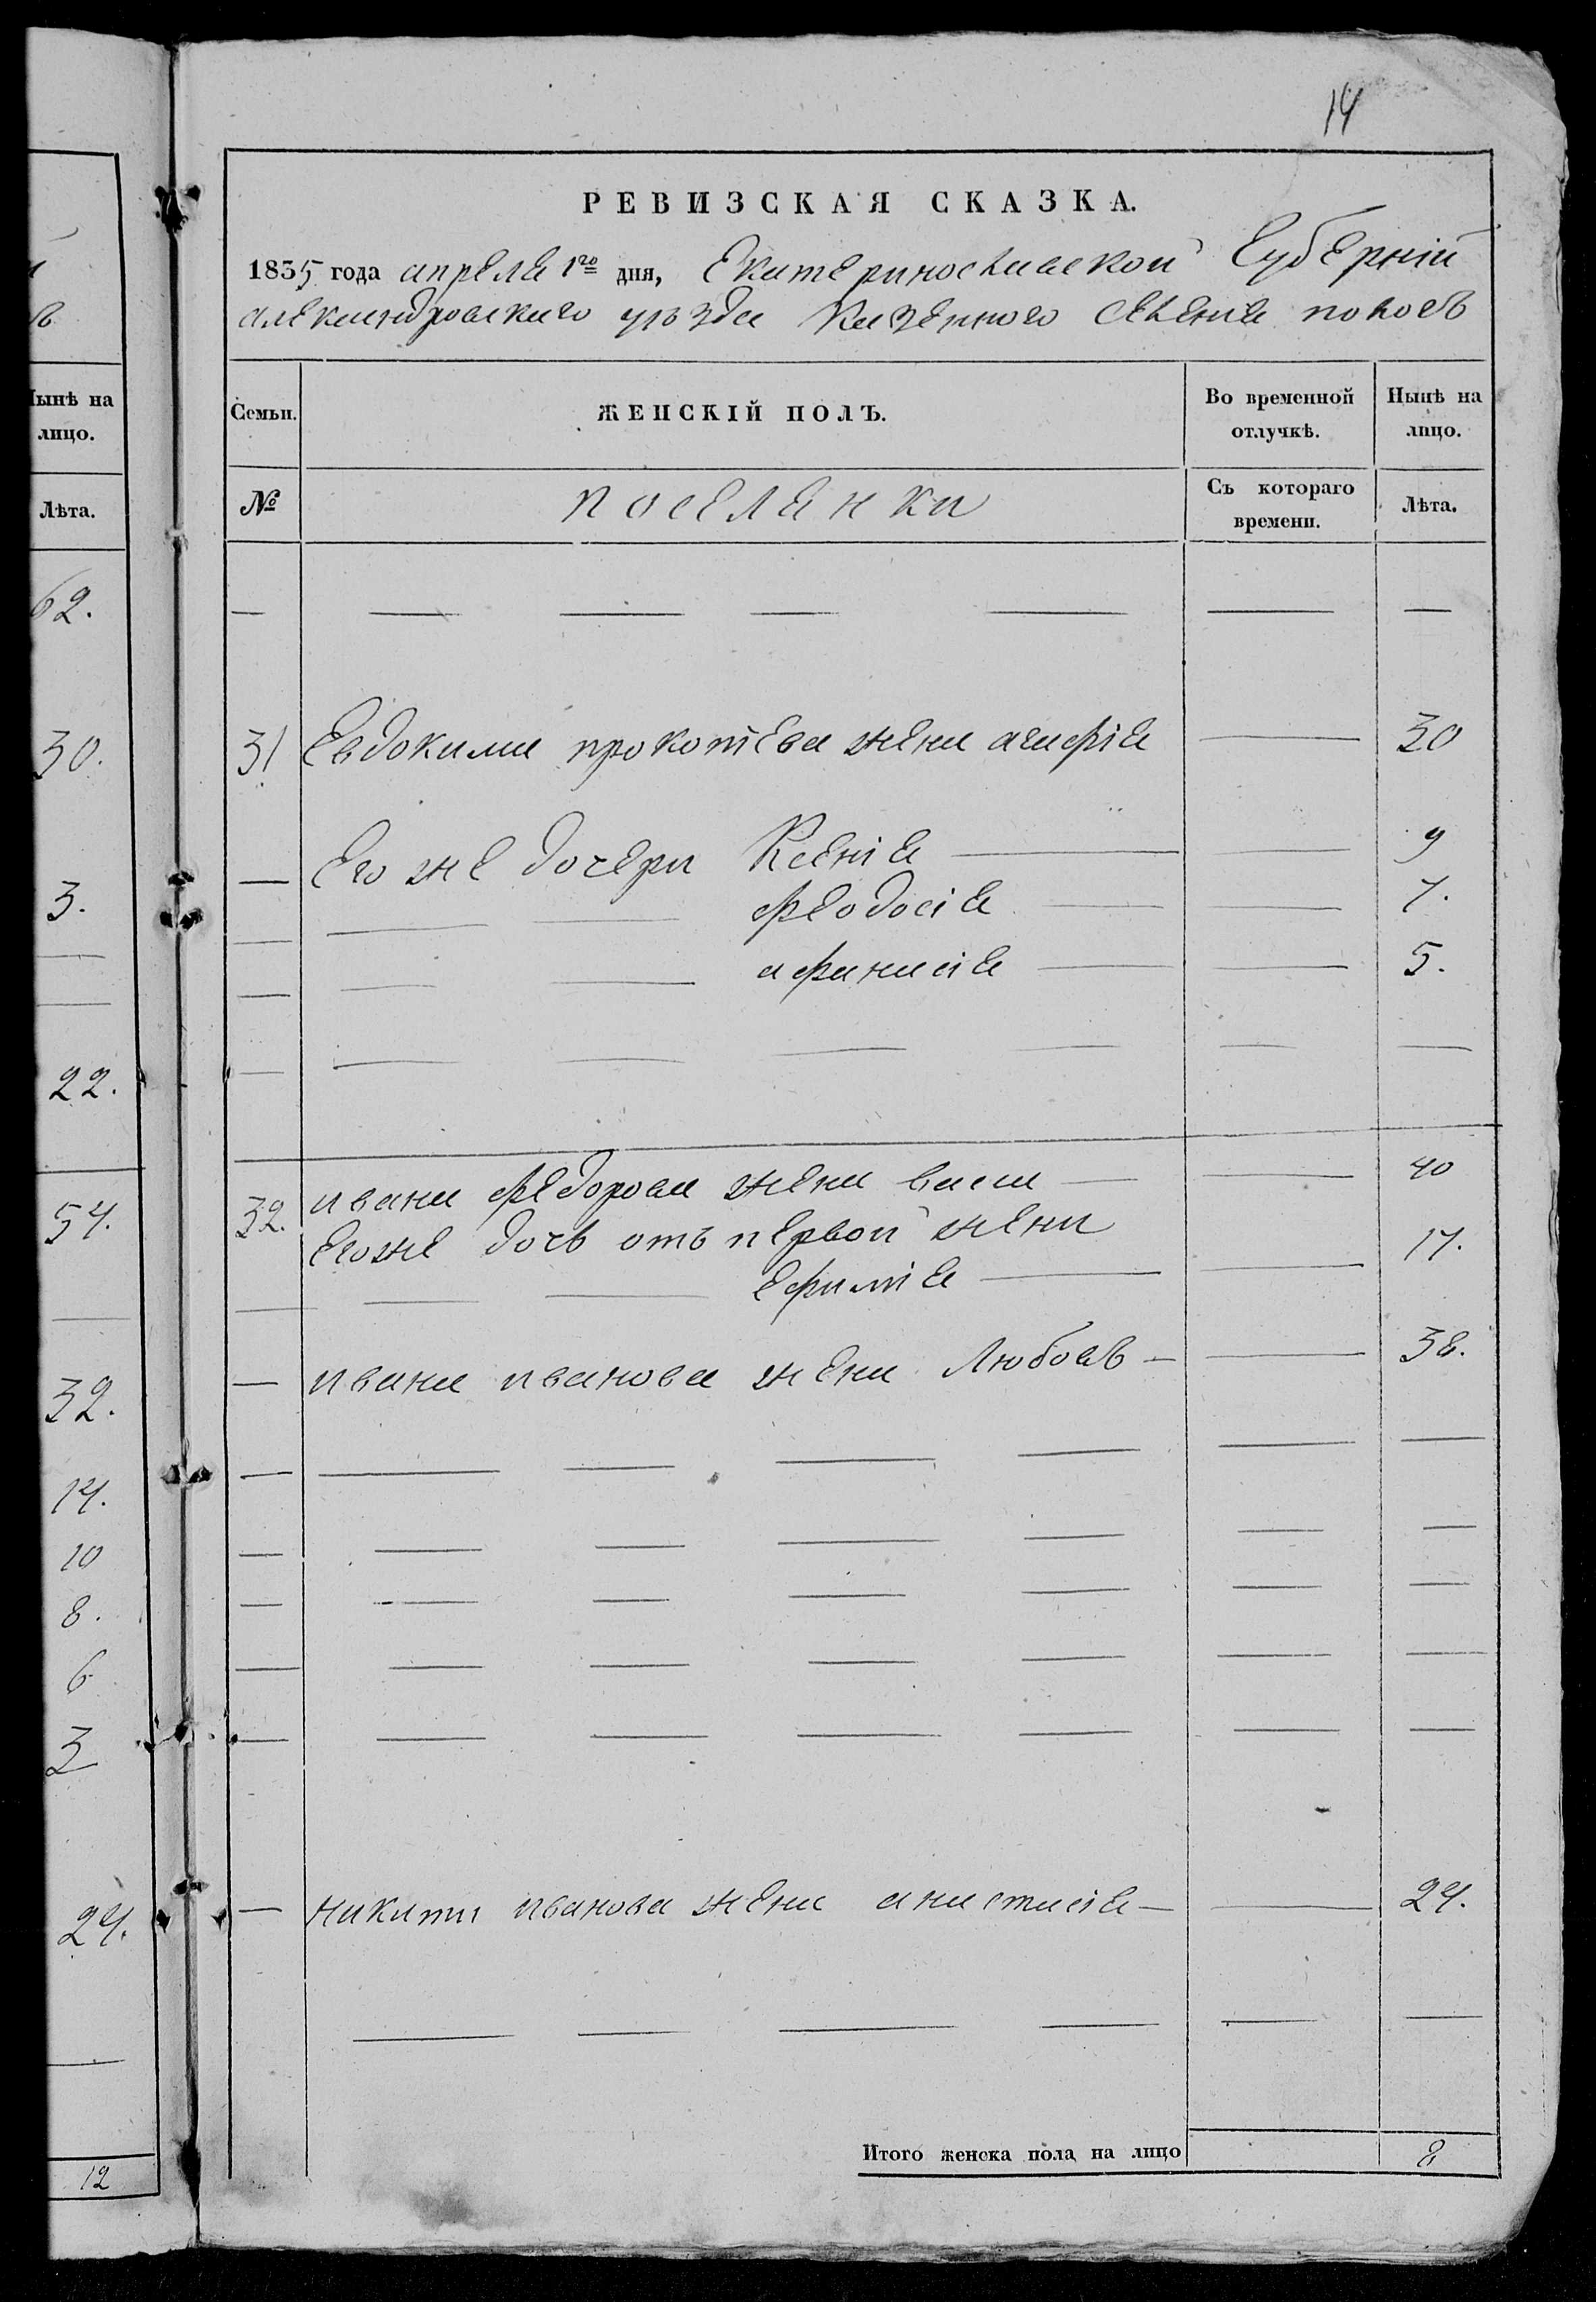 14
РЕВИЗСКАЯ СКАЗКА.
1835 года апреля 1го дня, Екатеринославской Губерніи
александровскаго уѣзда Казенного селения поповъ
Нынѣ на
лицо.
Лѣта.
62.
30.
3.
22.
54.
32.
14.
10
8.
6
3
24.
12
Семьи.
ЖЕНСКІЙ ПОЛЪ.
Во временной
отлучкѣ.
Нынѣ на
лицо.
№
поселянки
Съ котораго
времени.
Лѣта.
31 Евдокима прокопіева жена агафія 30
Его же дочери Ксенія 9
феодосія 7.
афанасія 5.
32. ивана федорова жена васса 40
Егоже дочь отъ первой жены
ефимія 17.
ивана иванова жена Любовь 38.
никиты иванова жена анастасія 24.
Итого женска пола на лицо 8